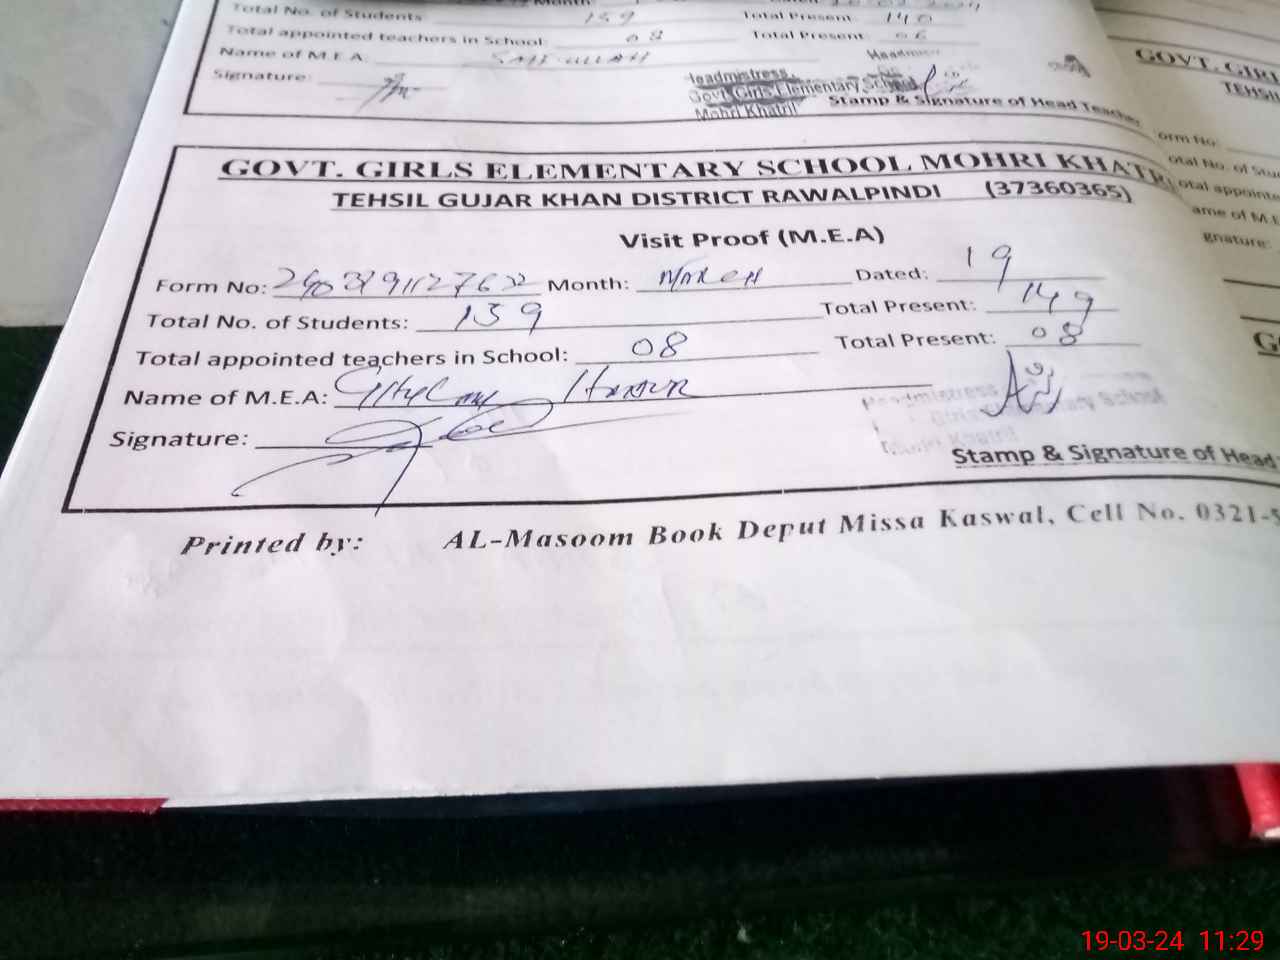 Total No. of Students: 159 Total Present: 140
Total appointed teachers in School: 08 Total Present: 06
Name of M.E.A:
Signature:
Headmistress
Govt. Girls Elementary School
Mohri Khatril
Stamp & Signature of Head Teacher
GOVT. GIRLS ELEMENTARY SCHOOL MOHRI KHATRI
TEHSIL GUJAR KHAN DISTRICT RAWALPINDI (37360365)
Visit Proof (M.E.A)
Form No: Month: MARCH Dated: 19
Total No. of Students: 159 Total Present: 149
Total appointed teachers in School: 08 Total Present: 08
Name of M.E.A:
Signature:
Headmistress
Girls Elementary School
Mohri Khatril
Stamp & Signature of Head
Printed by: AL-Masoom Book Deput Missa Kaswal, Cell No. 0321-5
GOVT. GIRL
TEHSIL
orm No:
otal No. of Stud
otal appointe
ame of M.E
gnature:
19-03-24 11:29